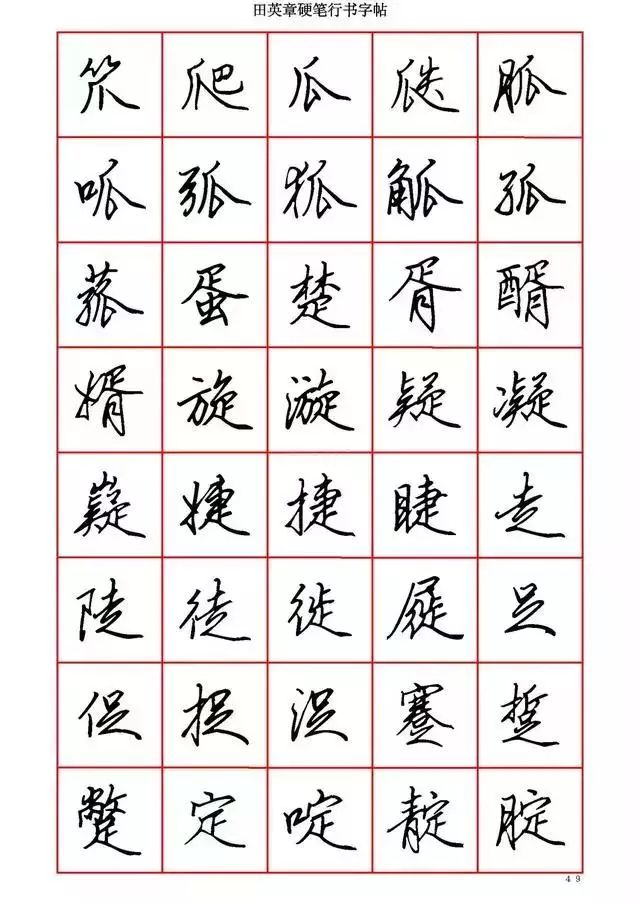 田英章硬笔行书字帖
笊爬瓜瓞胍
呱弧狐觚孤
菰蛋楚胥醑
婿旋漩疑凝
嶷婕捷睫走
陡徒徙屣足
促捉浞蹇踅
蹩定啶靛腚
49